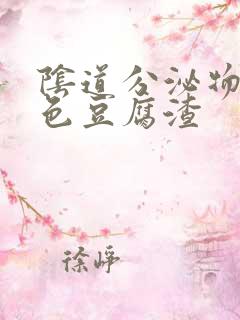 陰道分泌物
色豆腐渣
徐崢